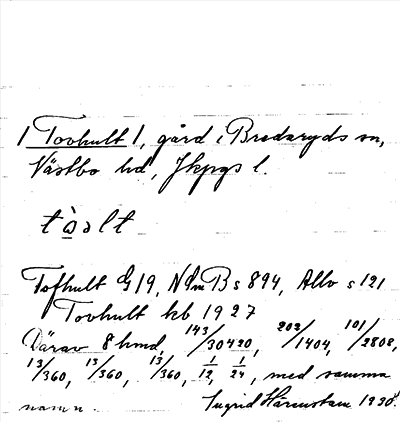 1 Tovhult 1, gård i Bredaryds sn,
Västbo hd, Jkpgs l.
tò̱əlt
Tofhult G 19, NSmB s 894, Allv s 121
Tovhult kb 1927
Därav 8 hmd, 143/30420, 202/1404, 101/2808,
13/360, 13/360, 13/360, 1/12, 1/24, med samma
namn. Ingrid Härenstam 1930.